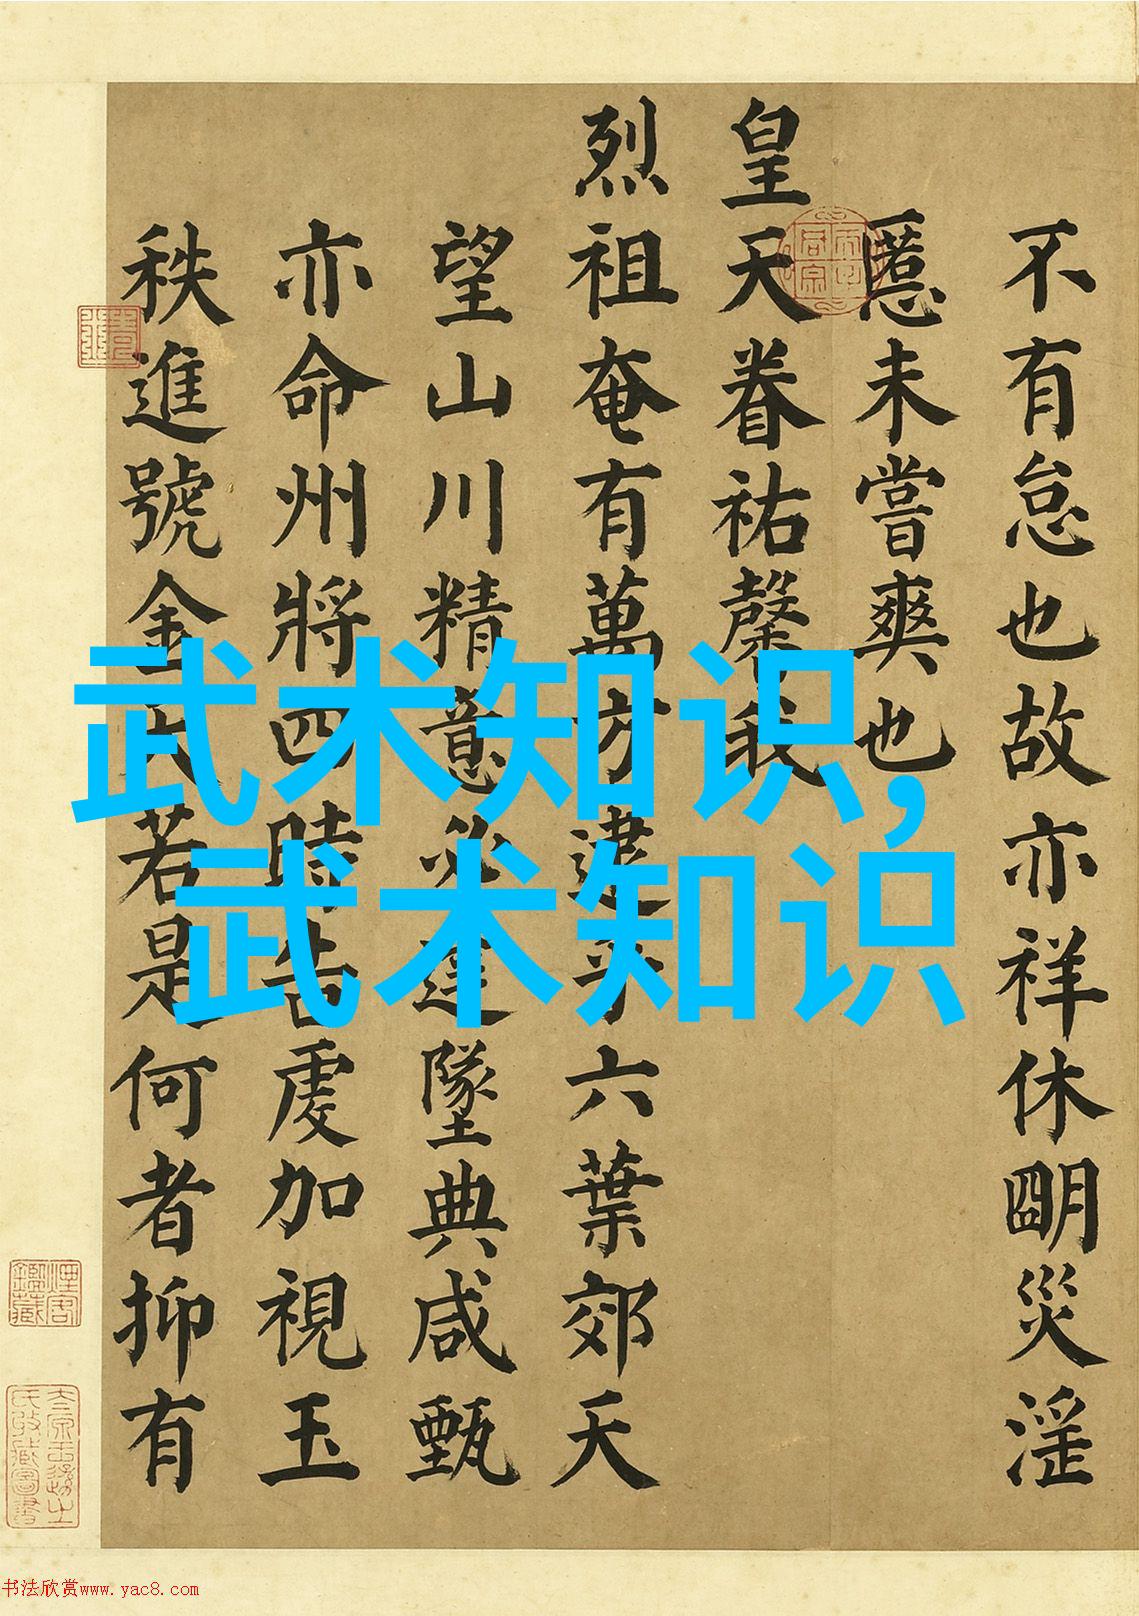 不有怠也故亦祥休朙災淫
慝未嘗爽也
皇天眷祐馨我
烈祖奄有萬方逮乎六葉郊天
望山川精意必達墜典咸甄
亦命州將四時告虔加視玉
秩進號金若是何者抑有
武术知识,
武术知识
书法欣赏www.yac8.com